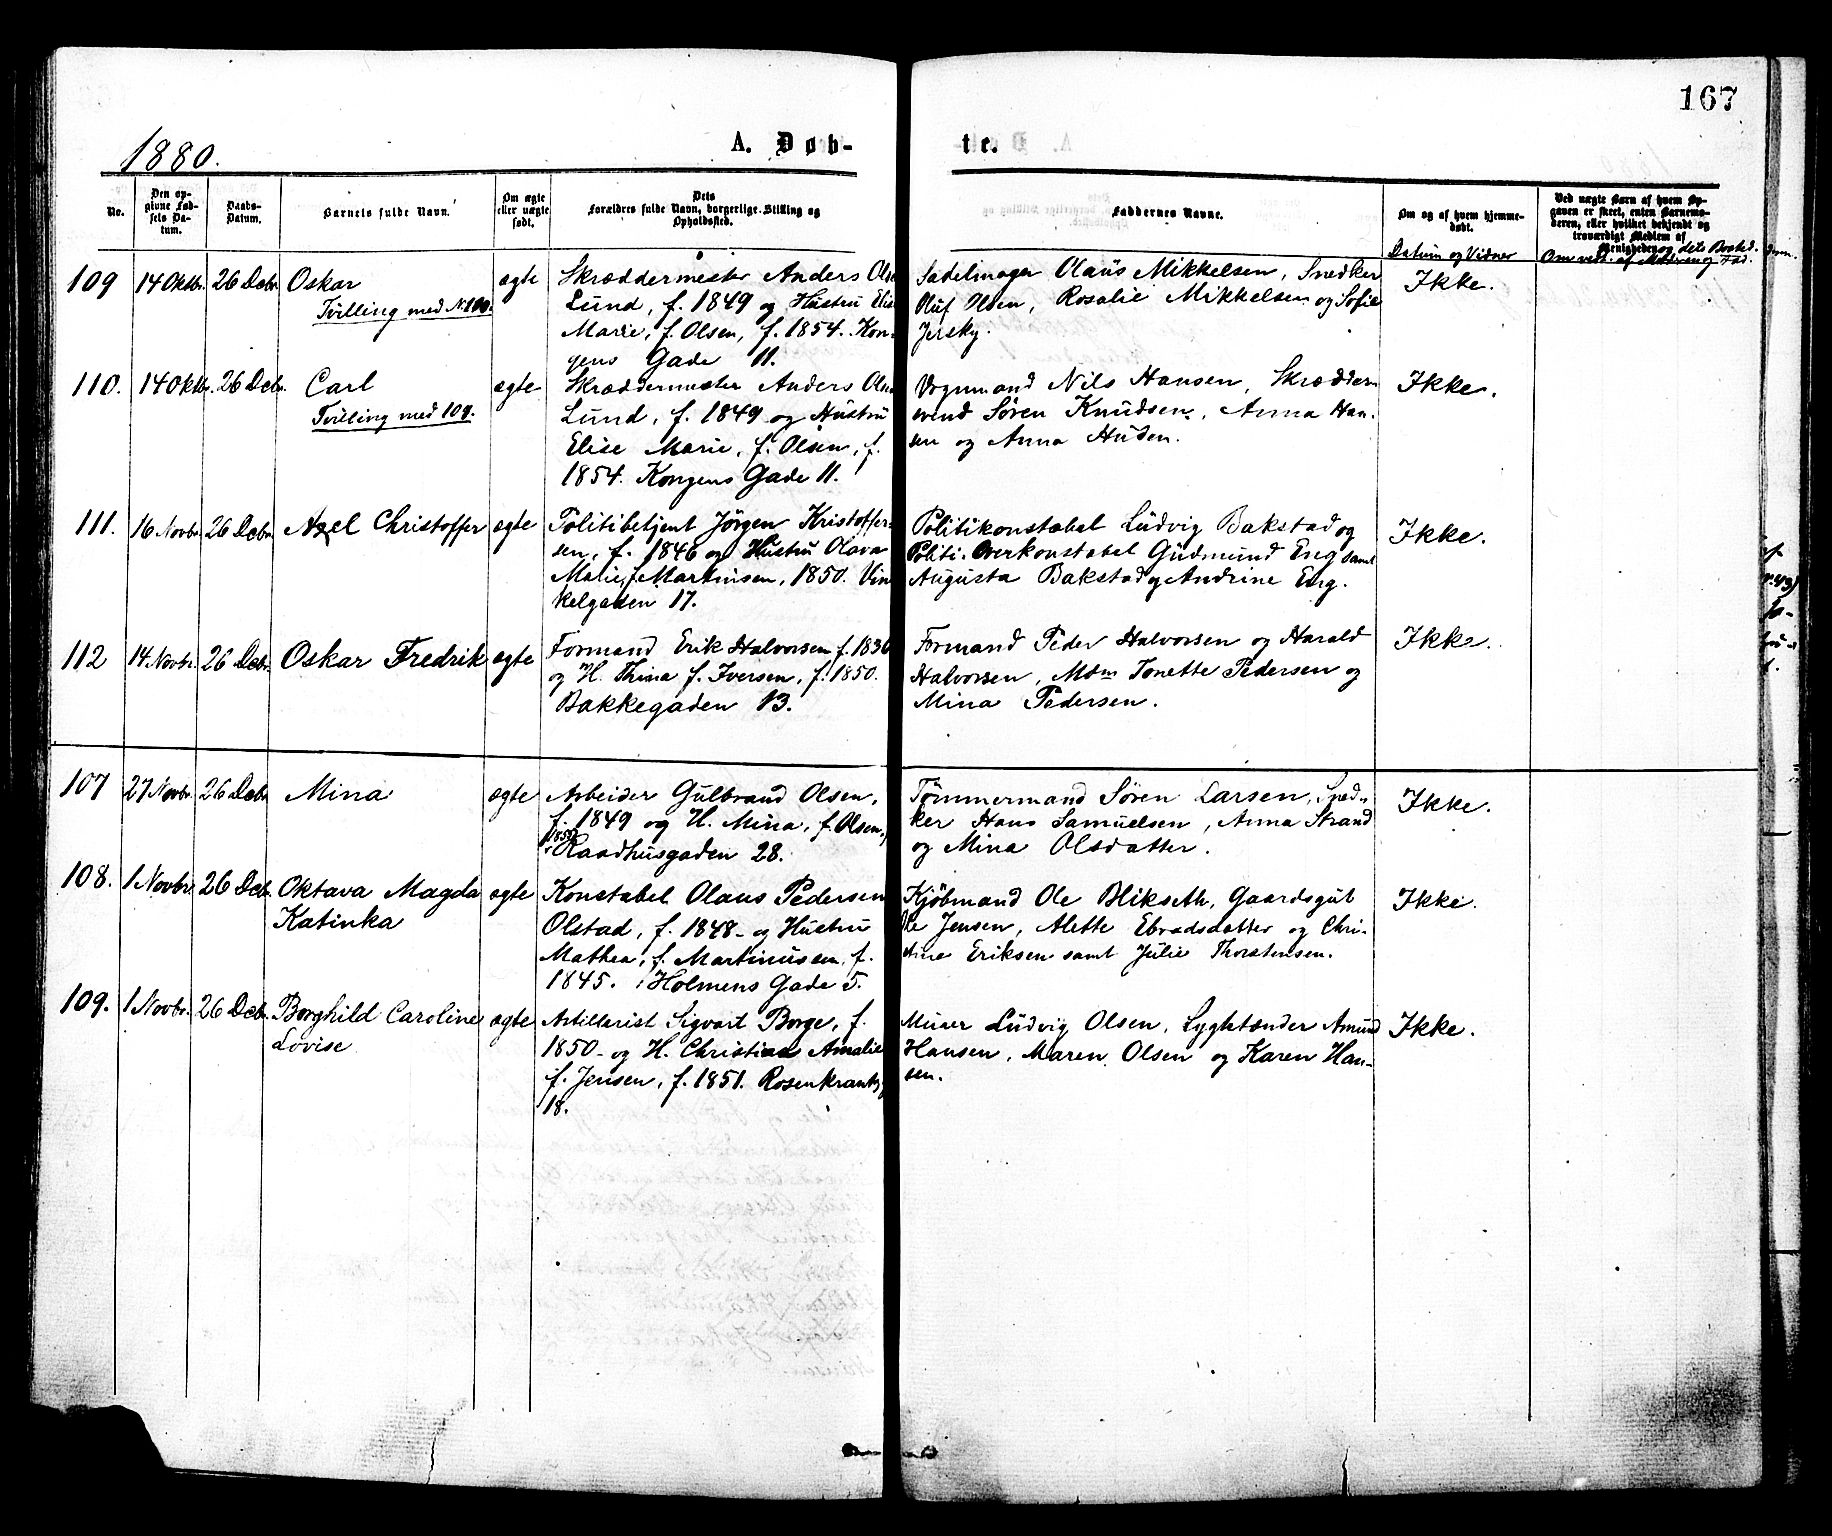 167
1880.
A. Døb-
te.
No.
Den op-
givne Fød-
sels Da-
tum.
Daabs-
Datum.
Barnets fulde Navn.
Om ægte
eller uægte
født.
Dets
Forældres fulde Navn, borgerlige Stilling og
Opholdssted.
Faddernes Navne.
Om og af hvem hjemme-
døbt.
Datum og Vidner
Ved uægte Barn af hvem Op-
gaven er skeet, enten Barnemo-
deren, eller hvilket bekjendt og
troværdigt Medlem af
Menigheden og dets Bosted.
109 14 Oktbr. 26 Decbr. Oskar ægte
Tvilling med No. 110.
Skræddermester Anders Olsen
Lund, f. 1849 og Hustru Elise
Marie, f. Olsen, f. 1854. Kon-
gens Gade 11.
Sadelmager Olaus Mikkelsen, Snedker
Oluf Olsen, Rosalie Mikkelsen og Sofie
Jersky.
Ikke.
110. 14 Oktbr. 26 Decbr. Carl ægte
Tvilling med 109.
Skræddermester Anders Olsen
Lund, f. 1849 og Hustru
Elise Marie, f. Olsen, f.
1854. Kongens Gade 11.
Vognmand Nils Hansen, Skrædder-
svend Søren Knudsen, Anna Han-
sen og Anna Huden.
Ikke.
111. 16 Novbr. 26 Decbr. Axel Christoffer ægte
Politibetjent Jörgen Kristoffer-
sen, f. 1846 og Hustru Olava
Marie, f. Martinsen, 1850. Vin-
kelgaden 17.
Politikonstabel Ludvig Bakstad og
Politi-Overkonstabel Gudmund Eng samt
Augusta Bakstad og Andrine Eng.
Ikke.
112 14 Novbr. 26 Decbr. Oskar Fredrik ægte
Formand Erik Halvorsen f. 1836
og H. Thina f. Iversen, f. 1850.
Bakkegaden 13.
Formand Peder Halvorsen og Harald
Halvorsen, Mdm Tonette Pedersen og
Mina Pedersen.
Ikke.
107 27 Novbr. 26 Decbr. Mina ægte
Arbeider Gulbrand Olsen,
f. 1849 og H. Mina, f. Olsen,
Raadhusgaden 28.
Tømmermand Søren Larsen, Sned-
ker Hans Samuelsen, Anna Strand
og Mina Olsdatter.
Ikke.
108. 1 Novbr. 26 Decbr. Oktava Magda ægte
Katinka
Konstabel Olaus Pedersen
Olstad, f. 1848 og Hustru
Mathea, f. Martinusen, f.
1845. Holmens Gade 5.
Kjøbmand Ole Blikseth, Gaardsgut
Ole Jensen, Alette Ebradsdatter og Chri-
stine Eriksen samt Julie Thorstensen.
Ikke.
109. 1 Novbr. 26 Decbr. Borghild Caroline ægte
Lovise
Artillerist Sigvart Borge, f.
1850 og H. Christine Amalie
f. Jensen, f. 1851. Rosenkrantzg
18.
Murer Ludvig Olsen, Lygtetænder Amund
Hansen, Maren Olsen og Karen Han-
sen.
Ikke.